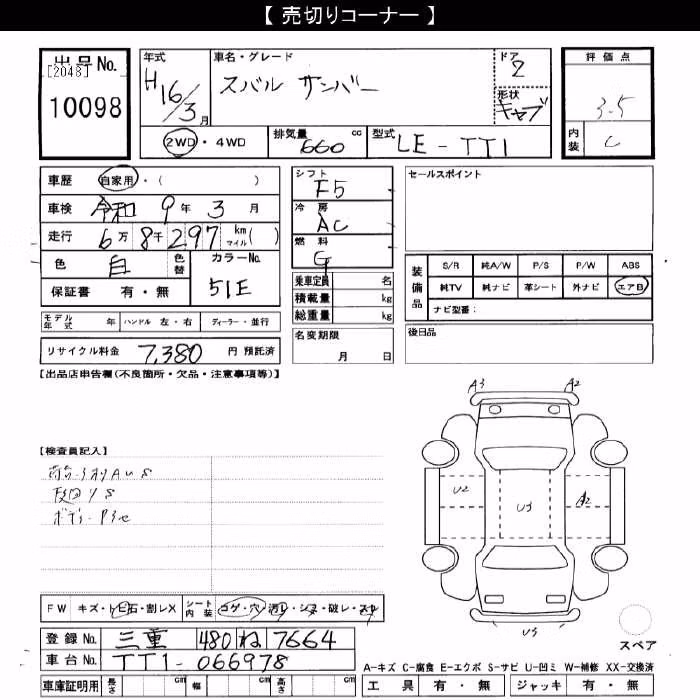 【 売切りコーナー 】
出品 No.
[2048]
10098
年式
H16/3月
車名・グレード
スバル サンバー
ドア
2
形状
キャブ
評価点
3.5
内装
C
2WD・4WD
排気量 660 cc
型式 LE-TT1
車歴 自家用・( )
車検 令和 9年 3月
走行 6万 8千 297 km マイル ( )
色 白 色替
カラーNo.
51E
保証書 有・無
モデル年式 年 ハンドル 左・右 ディーラー・並行
リサイクル料金 7,380 円 預託済
シフト
F5
冷房
AC
燃料
G
乗車定員 名
積載量 kg
総重量 kg
名変期限
月 日
セールスポイント
装備品
S/R 純A/W P/S P/W ABS
純TV 純ナビ 革シート 外ナビ エアB
ナビ型番:
後日品
【出品店申告欄(不良箇所・欠品・注意事項等)】
【検査員記入】
A3 A2
U2 U3 A2
U3
スペア
FW キズ・トビ石・割レX シート内装 コゲ・穴・汚レ・シミ・破レ・スレ
登録 No. 三重 480 ね 7664
車台 No. TT1-066978
車庫証明用 長さ cm 幅 cm 高さ cm
A-キズ C-腐食 E-エクボ S-サビ U-凹ミ W-補修 XX-交換済
工具 有・無 ジャッキ 有・無